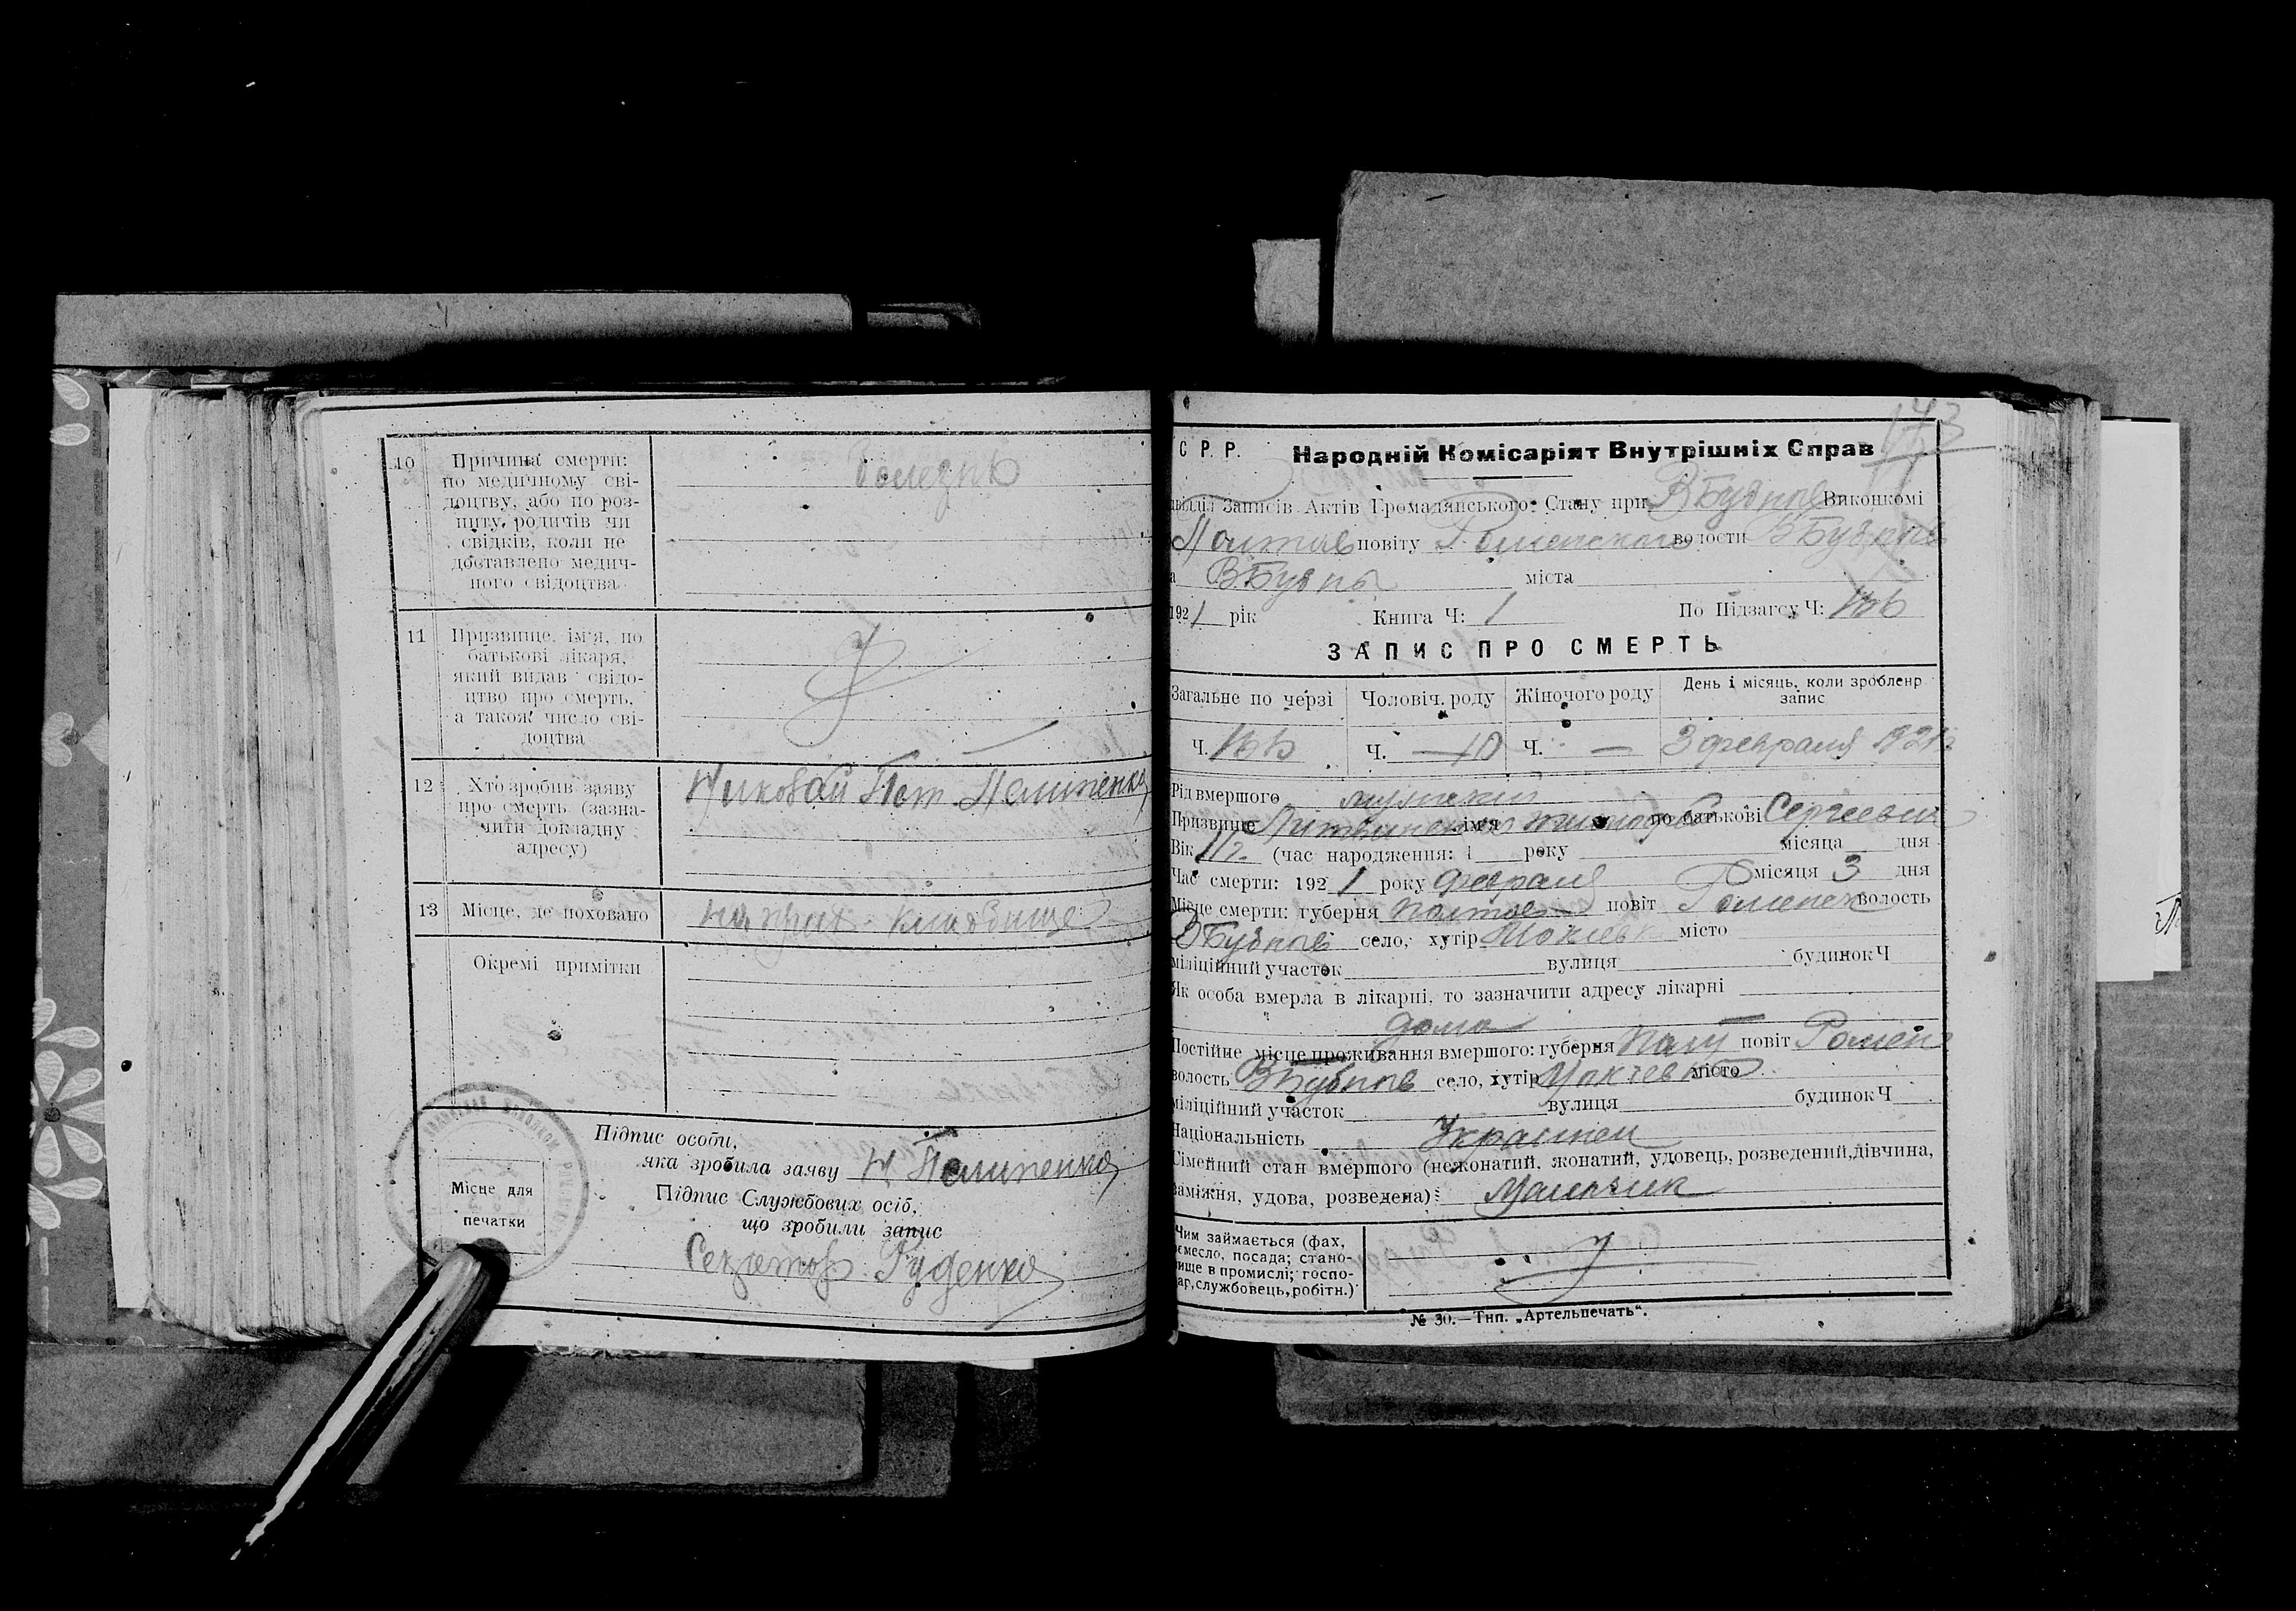 10 Причина смерти:
по медичному сві-
доцтву, або по роз-
питу родичів чи
свідків, коли не
доставлено медич-
ного свідоцтва
болезнь
11 Призвище, ім'я, по
батькові лікаря,
який видав свідо-
цтво про смерть,
а також число сві-
доцтва
12 Хто зробив заяву
про смерть (зазна-
чити докладну
адресу)
Николай Пет.
13 Місце, де поховано
кладбище
Окремі примітки
Місце для
печатки
Підпис особи,
яка зробила заяву Н.
Підпис Службових осіб,
що зробили запис
Секретар Руденко
173
С Р. Р. Народній Комісаріят Внутрішніх Справ
Записів Актів Громадянського Стану при В Бубнов Виконкомі
Полтав повіту Роменского волости В Бубнов
В.Бубны міста
1921 рік Книга Ч: 1 По Підзагсу Ч:
ЗАПИС ПРО СМЕРТЬ
Загальне по черзі Чоловіч. роду Жіночого роду День і місяць, коли зроблено
запис
Ч. Ч. 10 Ч. — 3 февраля 1921
Рід вмершого мужский
Призвище ім'я по батькові Сергеевич
Вік 1/2 (час народження: 1 року місяца дня
Час смерти: 1921 року февраля місяця 3 дня
Місце смерти: губерня Полтав повіт Роменск волость
В Бубнов село, хутір місто
міліційний участок вулиця будинок Ч
Як особа вмерла в лікарні, то зазначити адресу лікарні
дома
Постійне місце проживання вмершого: губерня Полт повіт Ромен
волость В Бубнов село, хутір місто
міліційний участок вулиця будинок Ч
Національність Украинец
Сімейний стан вмершого (нежонатий, жонатий, удовець, розведений, дівчина,
заміжня, удова, розведена): Мальчик
Чим займається (фах,
ремесло, посада; стано-
вище в промислі; госпо-
дар, службовець, робітн.)
№ 30.—Тип. „Артельпечать“.